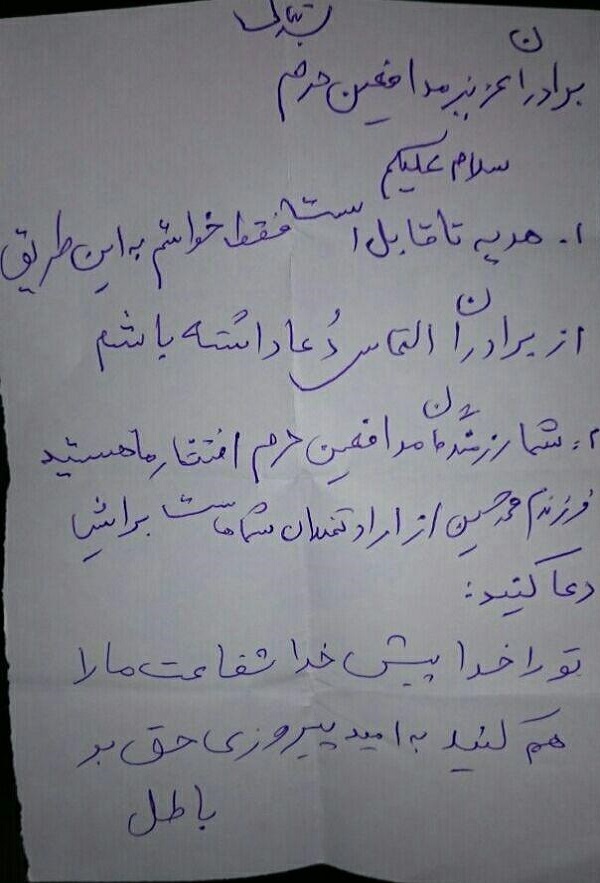 برادران عزیز مدافعین حرم
سلام علیکم
۱. هدیه ناقابل است فقط خواستم به این طریق
از برادران التماس دُعا داشته باشم
۲. شما رزمندگان مدافعین حرم افتخار ما هستید
فرزندم محمد حسین از ارادتمندان شماست برایش
دعا کنید:
تو را خدا پیش خدا شفاعت ما را
هم کنید به امید پیروزی حق بر
باطل